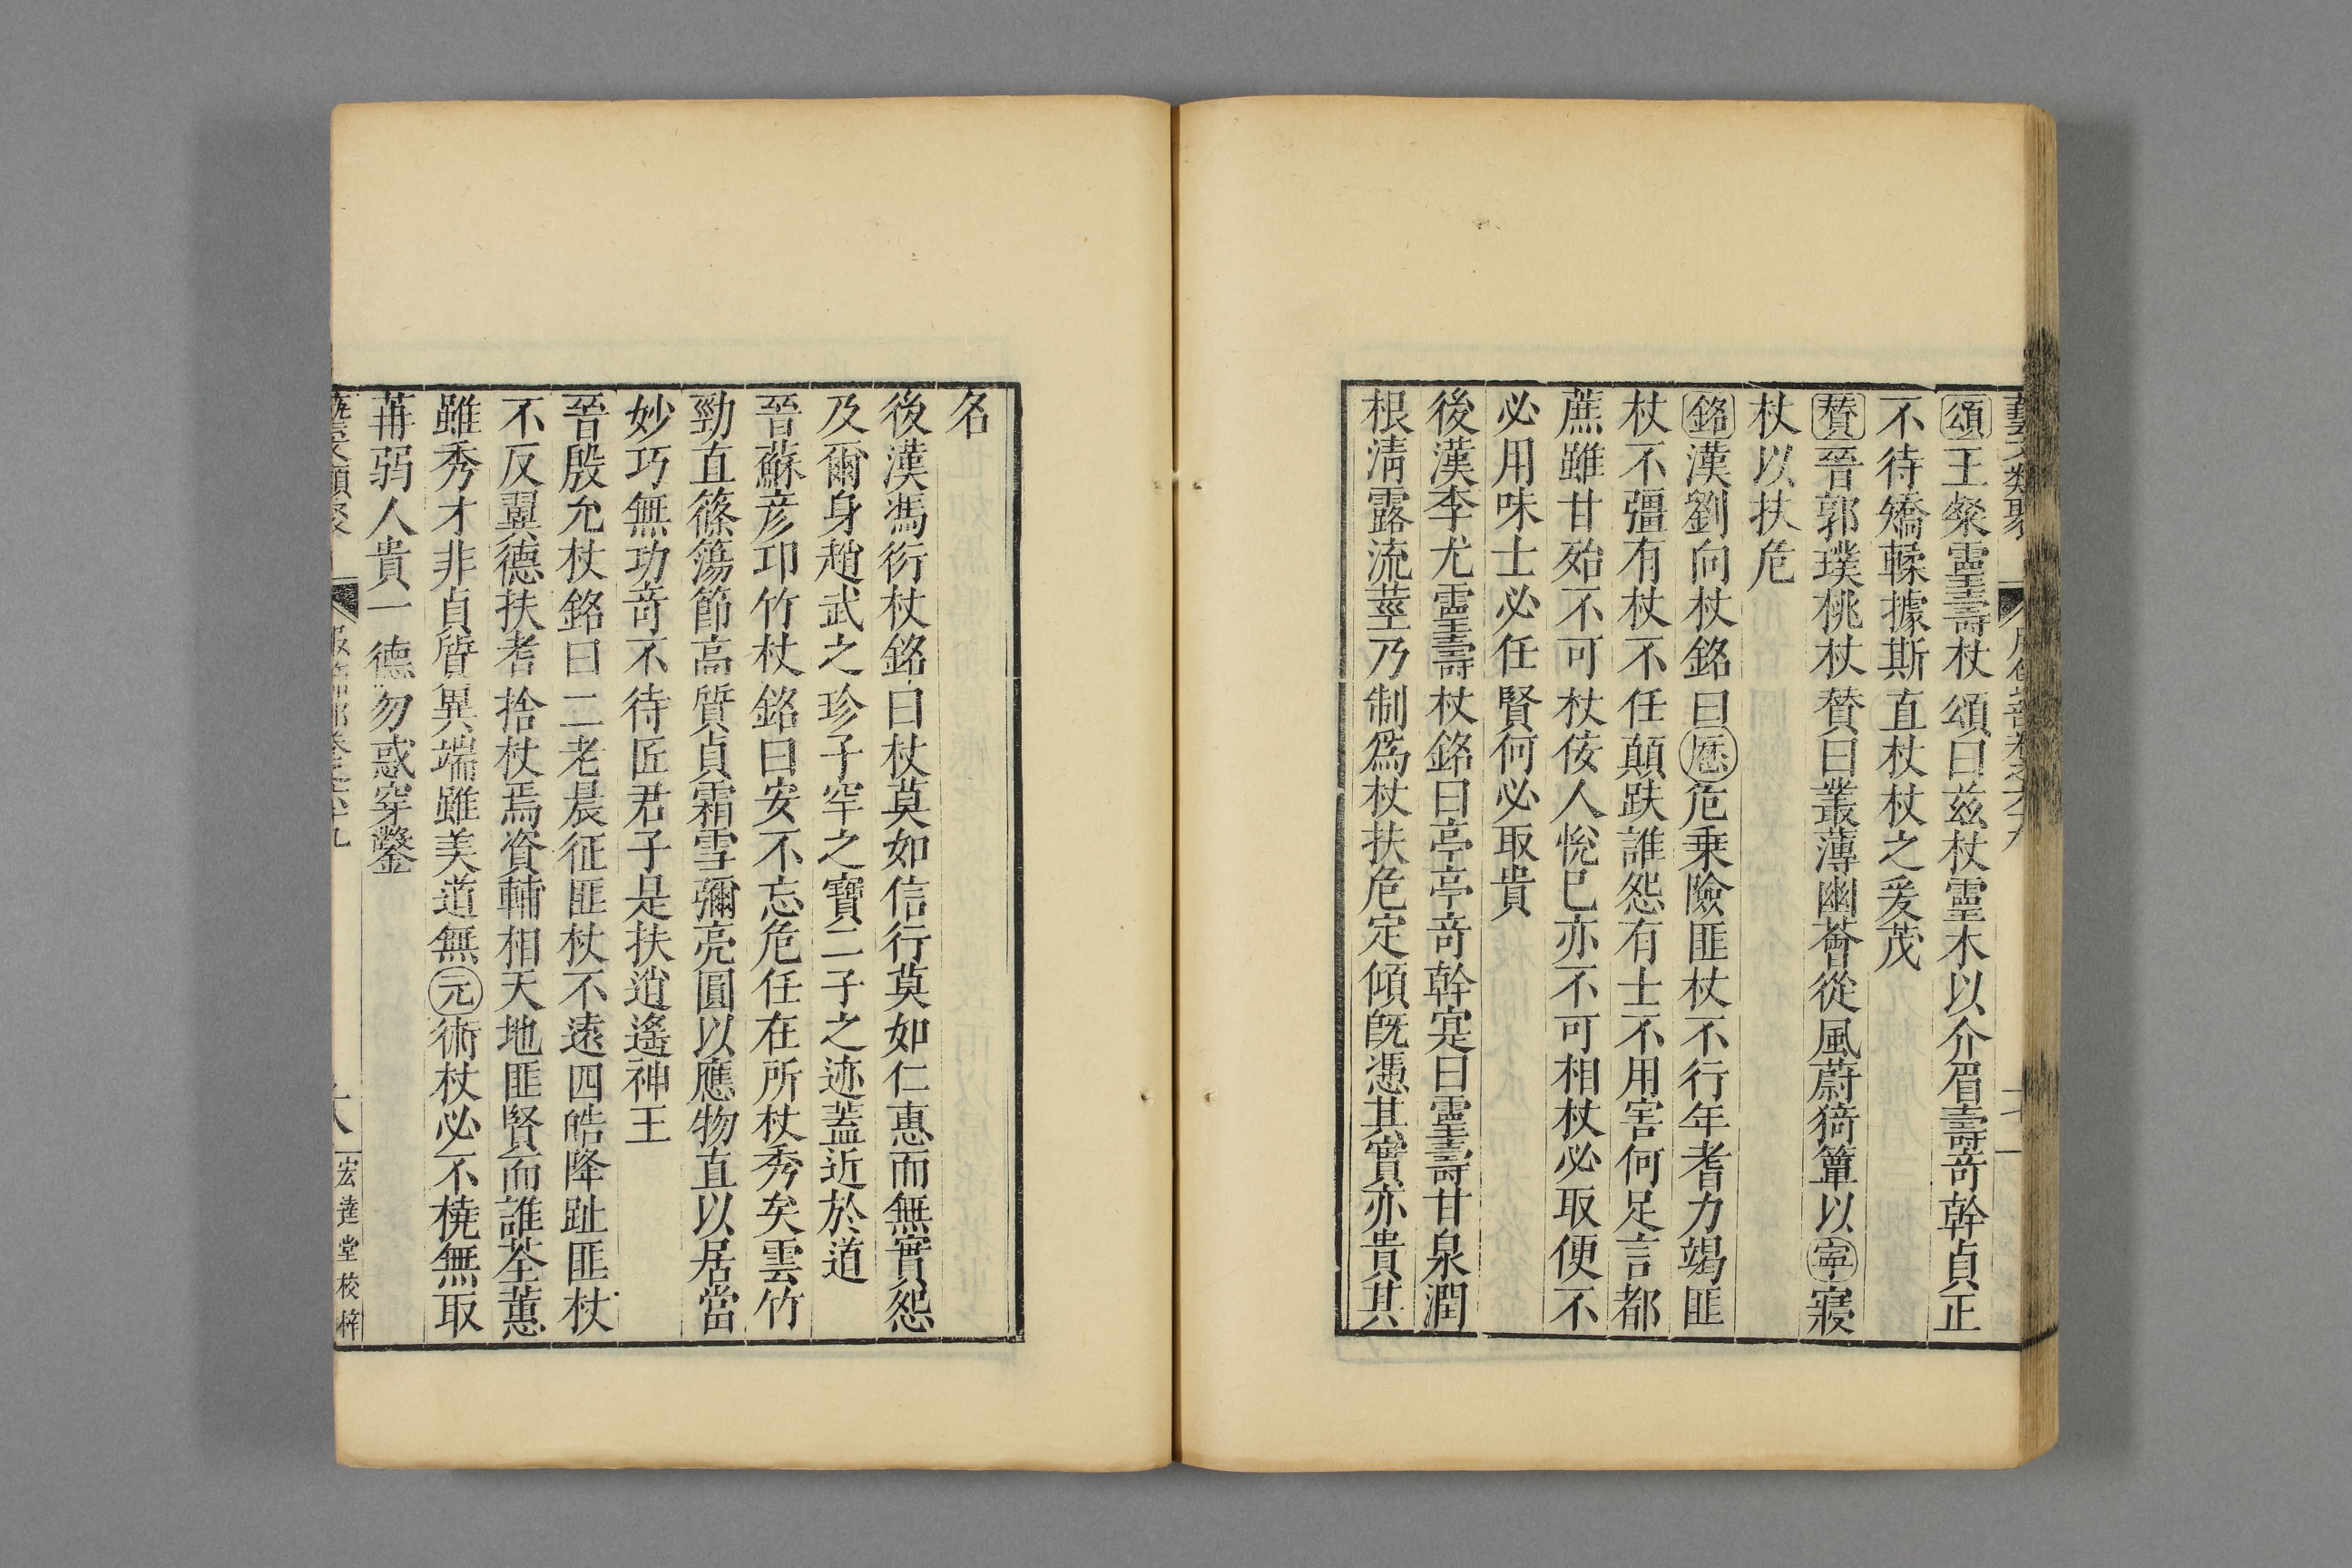 藝文類聚
頌王粲靈壽杖頌曰茲杖靈木以介眉壽竒幹貞正
不待矯輮據斯直杖杖之爰茂
賛晉郭璞桃杖賛曰叢薄幽薈從風蔚猗簞以寧寢
杖以扶危
銘漢劉向杖銘曰歴危乗險匪杖不行年耆力竭匪
杖不彊有杖不任顛跌誰怨有士不用害何足言都
蔗雖甘殆不可杖佞人悅巳亦不可相杖必取便不
必用味士必任賢何必取貴
後漢李尤靈壽杖銘曰亭亭竒幹寔曰靈壽甘泉潤
根清露流莖乃制爲杖扶危定傾旣憑其實亦貴其
名
後漢馮衍杖銘曰杖莫如信行莫如仁惠而無實怨
及爾身趙武之珍子罕之寶二子之迹蓋近於道
晉蘇彦卭竹杖銘曰安不忘危任在所杖秀矣雲竹
勁直篠簜節高質貞霜雪彌亮圓以應物直以居當
妙巧無功竒不待匠君子是扶逍遙神王
晉殷允杖銘曰二老晨征匪杖不遠四皓降趾匪杖
不反翼德扶耆捨杖焉資輔相天地匪賢而誰荃蕙
雖秀才非貞質異端雖美道無元術杖必不橈無取
苒弱人貴一德勿惑穿鑿
藝文類聚 服飾部卷之六十九 宏達堂校梓